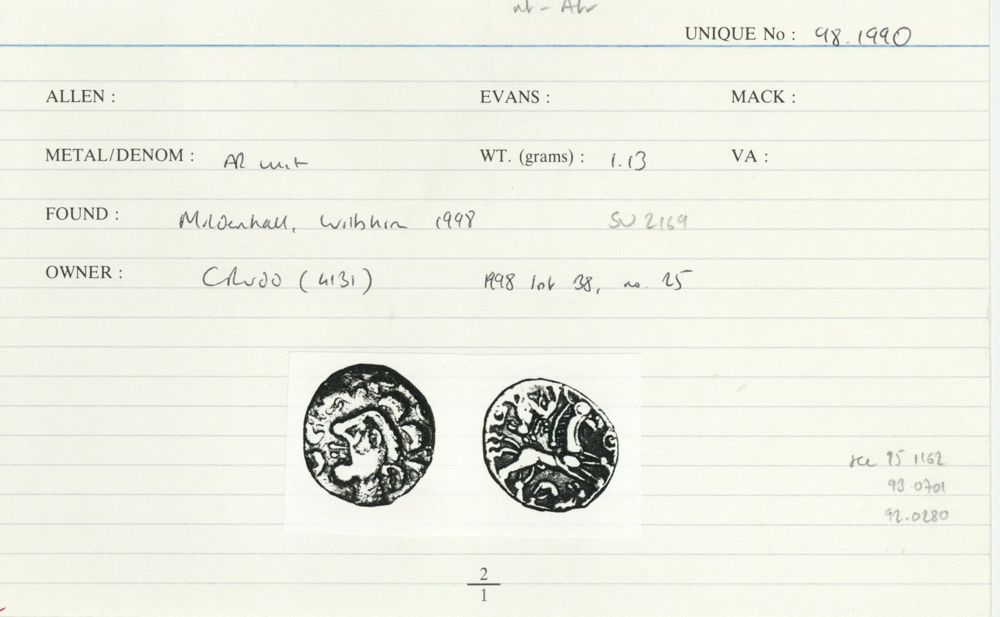 UNIQUE No : 98.1990
ALLEN : EVANS : MACK :
METAL/DENOM : AR unit WT. (grams) : 1.13 VA :
FOUND : Mildenhall, Wiltshire 1998 SU 2169
OWNER : (4131) 1998 lot 38, no. 25
see 95 1162
93.0701
92.0280
2
1